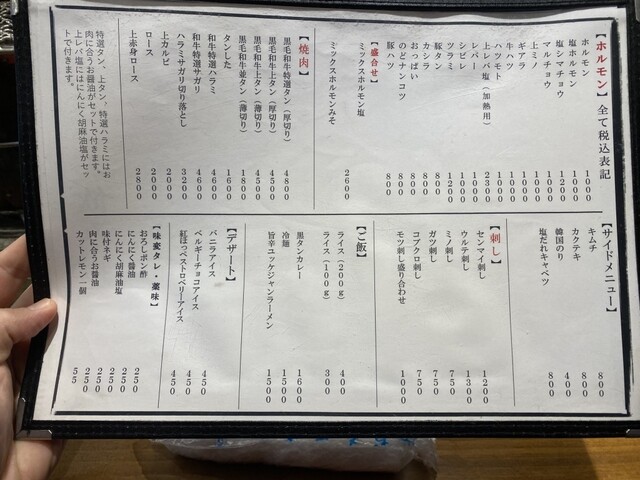 【ホルモン】全て税込表記
ホルモン 1000
塩ホルモン 1000
塩シマチョウ 1200
マルチョウ
上ミノ
ギアラ
牛ハツ
ハツモト
上レバ塩（加熱用） 2300
レバー
シビレ
ツラミ 1200
豚タン 800
カシラ 800
おっぱい 800
のどナンコツ 800
豚ハツ 800
【盛合せ】
ミックスホルモン塩
ミックスホルモンみそ 2600
【焼肉】
黒毛和牛特選タン（厚切り） 4800
黒毛和牛上タン（厚切り） 4500
黒毛和牛上タン（薄切り） 4500
黒毛和牛並タン（薄切り） 1800
タンした 1600
和牛特選ハラミ 4600
和牛特選サガリ 4600
ハラミサガリ切り落とし 3200
上カルビ
ロース 2200
上赤身ロース 2800
特選タン、上タン、特選ハラミにはお
肉に合うお醤油がセットで付きます。
上レバ塩にはにんにく胡麻油塩がセッ
トで付きます。
【サイドメニュー】
キムチ 800
カクテキ 800
韓国のり 400
塩だれキャベツ 800
【刺し】
センマイ刺し 1200
ウルテ刺し 1300
ミノ刺し 750
ガツ刺し 750
コブクロ刺し 750
モツ刺し盛り合わせ 1000
【ご飯】
ライス（200g） 400
ライス（100g） 300
黒タンカレー 1600
冷麺 1000
旨辛ユッケジャンラーメン 1500
【デザート】
バニラアイス 450
ベルギーチョコアイス 450
紅ほっぺストロベリーアイス 450
【味変タレ・薬味】
おろしポン酢 250
にんにく醤油 250
にんにく胡麻油塩 250
肉に合うお醤油 250
味付ネギ 250
カットレモン一個 55